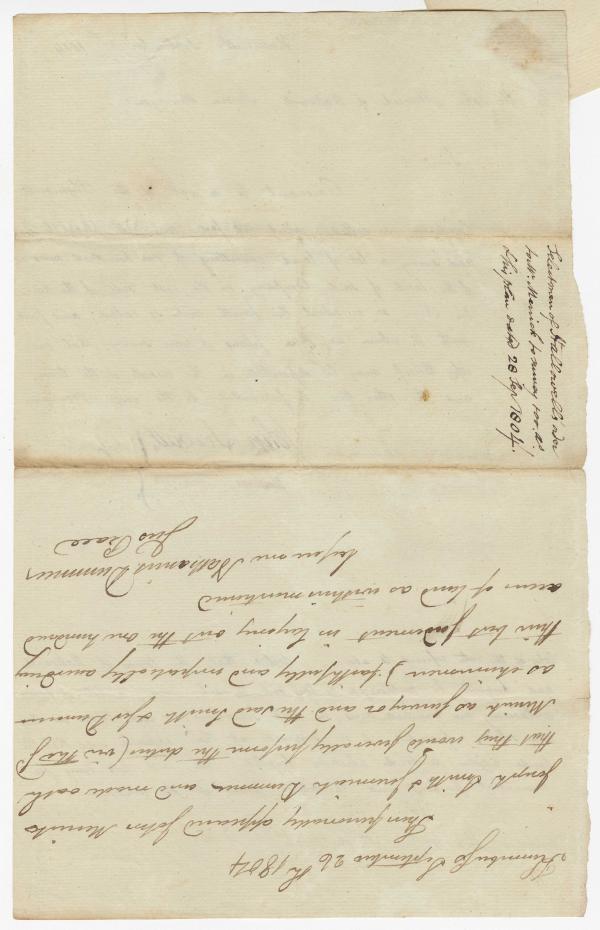 Kennebec Ss September 26th 1804
Then personally appeared John Merrick
Joseph Smith & Jeremiah Dummer and made oath
that they would severally perform the duties (viz. the sd
Merrick as surveyor and the said Smith & Jer Dummer
as chainmen) faithfully and impartially according
their best judgement in laying out the one hundred
acres of land as within mentioned
before me Nathaniel Dummer
Jus Peace

Selectmen of Hallowell's order
to Mr. Merrick to survey as
of his plan dated 28 Sep 1804.